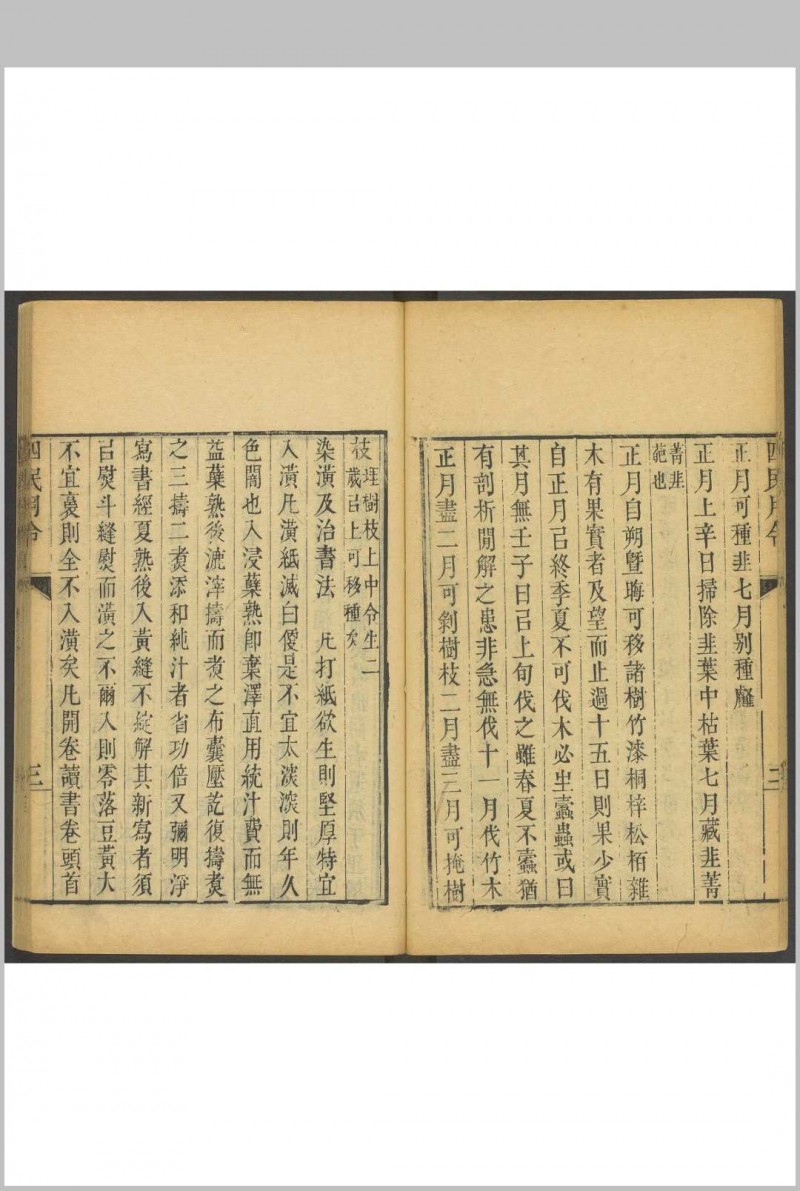 四民月令
三
正月可種韭七月别種䪥
正月上辛日掃除韭葉中枯葉七月藏韭菁
菁韭
葩也
正月自朔曁晦可移諸樹竹漆桐梓松栢雜
木有果實者及望而止過十五日則果少實
自正月㠯終季夏不可伐木必生蠹蟲或曰
其月無壬子日㠯上旬伐之雖春夏不蠹猶
有剖析閒解之患非急無伐十一月伐竹木
正月盡二月可剝樹枝二月盡三月可掩樹
枝
埋樹枝土中令生二
歲㠯上可移種矣
染潢及治書法 凡打紙欲生則堅厚特宜
入潢凡潢紙滅白㑓是不宜太深深則年久
色闇也入浸蘗熟卽棄滓直用純汁費而無
益蘗熟後漉滓擣而煑之布囊壓訖復擣煑
之三擣二煑添和純汁者省功倍又彌明淨
寫書經夏熟後入黃縫不綻解其新寫者須
㠯熨斗縫熨而潢之不爾入則零落豆黃大
不宜裛則全不入潢矣凡開卷讀書卷頭首
四民月令
三